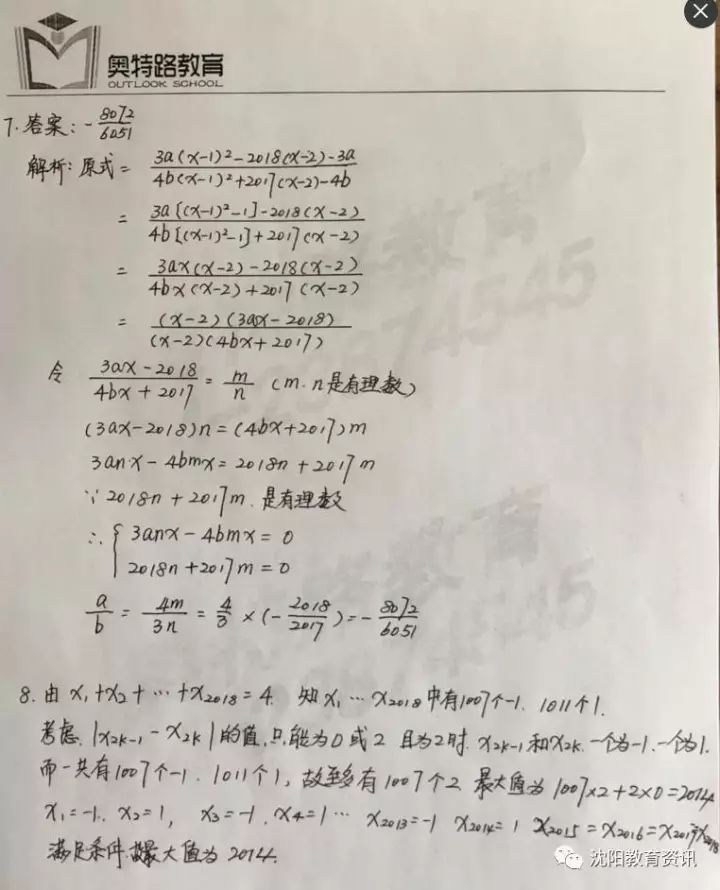 奥特路教育
OUTLOOK SCHOOL
7. 答案: -8072/6051
解析: 原式 = 3a(x-1)²-2018(x-2)-3a / 4b(x-1)²+2017(x-2)-4b
= 3a[(x-1)²-1]-2018(x-2) / 4b[(x-1)²-1]+2017(x-2)
= 3ax(x-2)-2018(x-2) / 4bx(x-2)+2017(x-2)
= (x-2)(3ax-2018) / (x-2)(4bx+2017)
令 3ax-2018 / 4bx+2017 = m/n (m.n是有理数)
(3ax-2018)n=(4bx+2017)m
3anx-4bmx=2018n+2017m
∵ 2018n+2017m.是有理数
∴ { 3anx-4bmx=0
2018n+2017m=0
a/b = 4m/3n = 4/3 ×(-2018/2017)=-8072/6051
8. 由 x₁+x₂+…+x₂₀₁₈=4. 知x₁…x₂₀₁₈中有1007个-1. 1011个1.
考虑. |x₂ₖ₋₁-x₂ₖ|的值,只能为0或2 且为2时. x₂ₖ₋₁和x₂ₖ.一个为-1.一个为1.
而一共有1007个-1. 1011个1, 故至多有1007个2. 最大值为 1007×2+2×0=2014
x₁=-1. x₂=1, x₃=-1. x₄=1… x₂₀₁₃=-1 x₂₀₁₄=1 x₂₀₁₅=x₂₀₁₆=x₂₀₁₇=x₂₀₁₈
满足条件.故最大值为2014.
沈阳教育资讯